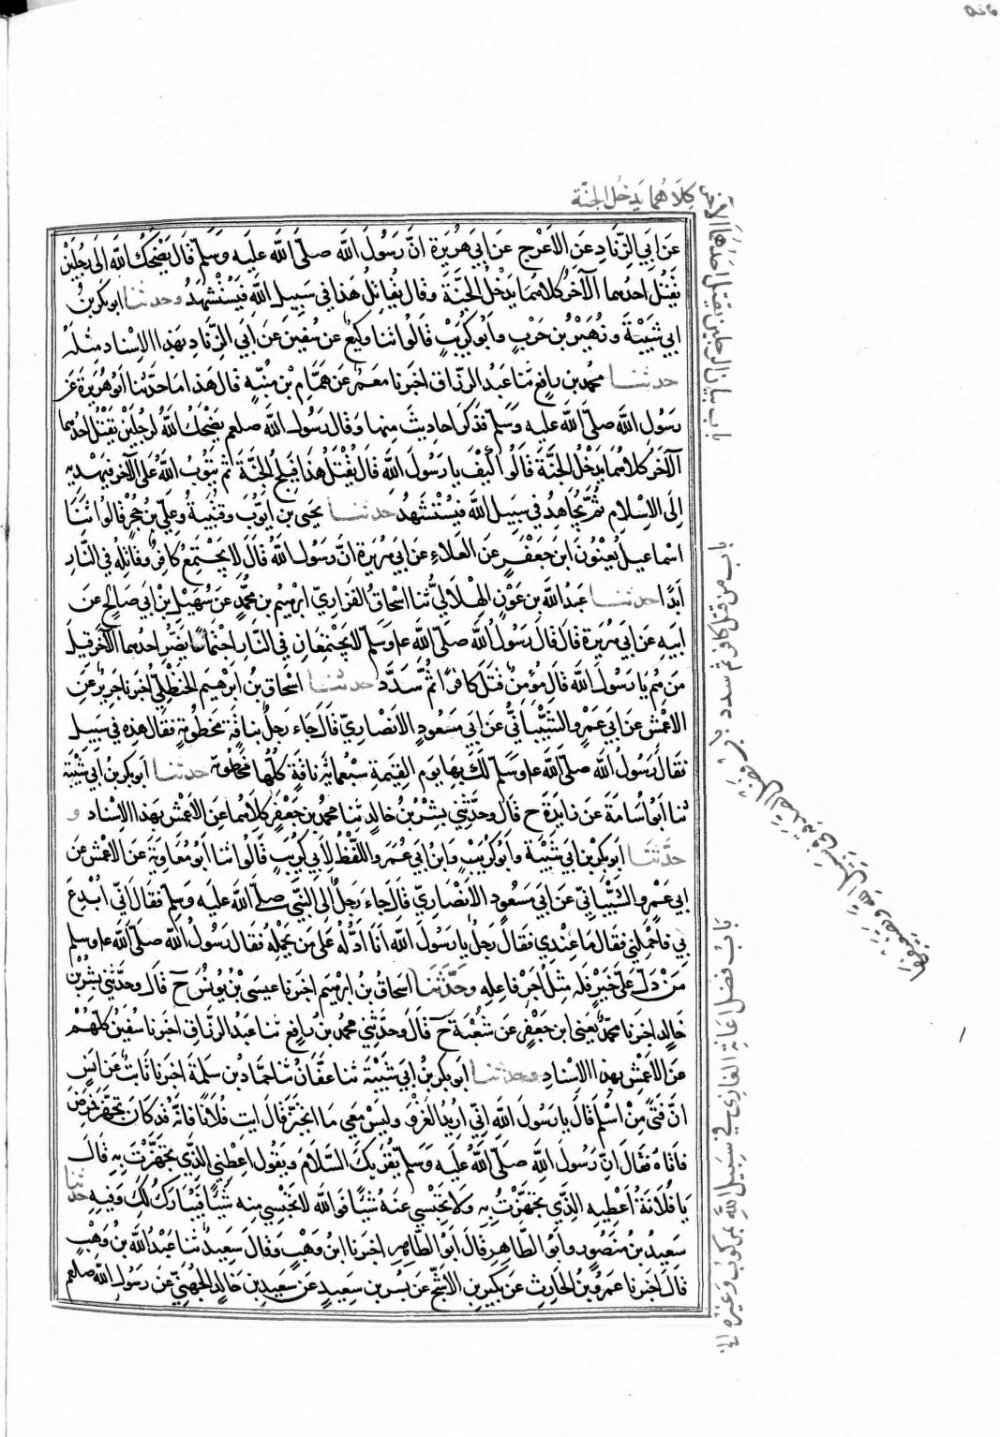 كلاهما يدخل الجنة
باب بيان الرجلين يقتل احدهما الآخر
عن ابي الزناد عن الاعرج عن ابي هريرة انّ رسول الله صلى الله عليه وسلم قال يضحك الله الى رجلين
يقتل احدهما الآخر كلاهما يدخل الجنة وقال يقاتل هذا في سبيل الله فيستشهد وحدثنا ابو بكر بن
ابي شيبة وزهير بن حرب وابو كريب قالوا ثنا وكيع عن سفين عن ابي الزناد بهذا الاسناد مثله
حدثنا محمد بن رافع ثنا عبد الرزاق اخبرنا معمر عن همام بن منبه قال هذا ما حدثنا ابو هريرة عن
رسول الله صلى الله عليه وسلم فذكر احاديث منها وقال رسول الله صلعم يضحك الله لرجلين يقتل احدهما
الآخر كلاهما يدخل الجنة قالوا كيف يا رسول الله قال يقتل هذا فيلج الجنة ثم يتوب الله على الآخر فيهديه
الى الاسلام ثم يجاهد في سبيل الله فيستشهد حدثنا يحيى بن ايوب وقتيبة وعلي بن حجر قالوا ثنا
اسماعيل يعنون ابن جعفر عن العلاء عن ابي هريرة انّ رسول الله قال لا يجتمع كافر وقاتله في النار
باب من قتل كافر ثم سدد
ابدا حدثنا عبد الله بن عون الهلالي ثنا ابو اسحاق الفزاري ابرهيم بن محمد عن سهيل بن ابي صالح عن
ابيه عن ابي هريرة قال قال رسول الله صلى الله عم وسلم لا يجتمعان في النار اجتماعا يضر احدهما الآخر قيل
من هم يا رسول الله قال مؤمن قتل كافرا ثم سدد حدثنا اسحاق بن ابرهيم الحنظلي اخبرنا جرير عن
الاعمش عن ابي عمرو الشيباني عن ابي مسعود الانصاري قال جاء رجل بناقة مخطومة فقال هذه في سبيل
فقال رسول الله صلى الله عم وسلم لك بها يوم القيمة سبعمائة ناقة كلها مخطومة حدثنا ابو بكر بن ابي شيبة
ثنا ابو اسامة عن زايدة ح قال وحدثني بشر بن خالد ثنا محمد بن جعفر كلاهما عن الاعمش بهذا الاسناد و
حدثنا ابو بكر بن ابي شيبة وابو كريب وابن ابي عمر واللفظ لابي كريب قالوا ثنا ابو معاوية عن الاعمش عن
ابي عمرو الشيباني عن ابي مسعود الانصاري قال جاء رجل الى النبي صلى الله عليه وسلم فقال اني ابدع
بي فاحملني فقال ما عندي فقال رجل يا رسول الله انا ادله على من يحمله فقال رسول الله صلى الله عم وسلم
باب فضل اعانة الغازي في سبيل الله بمركوب وغيره
من دل على خير فله مثل اجر فاعله وحدثنا اسحاق بن ابرهيم اخبرنا عيسى بن يونس ح قال وحدثني بشر بن
خالد اخبرنا محمد يعني ابن جعفر عن شعبة ح قال وحدثني محمد بن رافع ثنا عبد الرزاق اخبرنا سفين كلهم
عن الاعمش بهذا الاسناد وحدثنا ابو بكر بن ابي شيبة ثنا عفان ثنا حماد بن سلمة اخبرنا ثابت عن انس
انّ فتى من اسلم قال يا رسول الله اني اريد الغزو وليس معي ما اتجهز قال ايت فلانا فانه قد كان تجهز فمرض
فاتاه فقال انّ رسول الله صلى الله عليه وسلم يقريك السلام ويقول اعطني الذي تجهزت به قال
يا فلانة اعطيه الذي تجهزت به ولا تحبسي عنه شيئا فوالله لا تحبسي منه شيئا فيبارك لك وفيه حدثنا
سعيد بن منصور وابو الطاهر قال ابو الطاهر اخبرنا ابن وهب وقال سعيد ثنا عبد الله بن وهب
قال اخبرنا عمرو بن الحارث عن بكير بن الاشج عن بسر بن سعيد عن سعيد بن خالد الجهني عن رسول الله صلعم